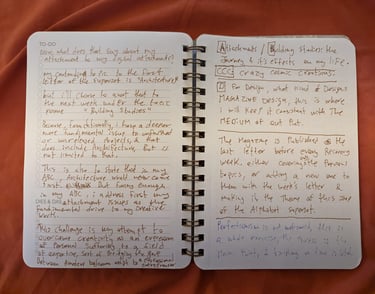 TO-DO
now, what does that say about my
attachment to my digital attachments?
my contention is to the first
letter of the alphabet is "Architecture"
but i'll choose to want that to
the next week under the basic
name "Building Studies"
because, functionally, i have a deeper
more fundamental issue to unfinished
or undeveloped projects, & that
does include Architecture, but is
not limited to that.
This is also to state that in my
ABC, Architecture would never come
first but turning enough
in my ABC, i address first my
attachment issues as the
fundamental drive to my creative
work.
This challenge is my attempt to
overcome creativity as an extension
of Personal Authority to a field
of expertise, sort of bridging the gap
between amateur
Attachments / Building Studies: the
journey & it's effects on my life.
CCC: crazy cosmic creations.
D For Design, what kind of Designs
Magazine Design, this is where
i will keep it consistent with the
MEDIUM of out put.
The Magazine is published the
last letter before every Recovery
week, either covering the previous
topics, or adding a new one
to them with the week's letter
making it the theme of this issue
of the Alphabet Superset.
Perfectionism is not
a whole exercise, the
main point, & finishing on time is vital